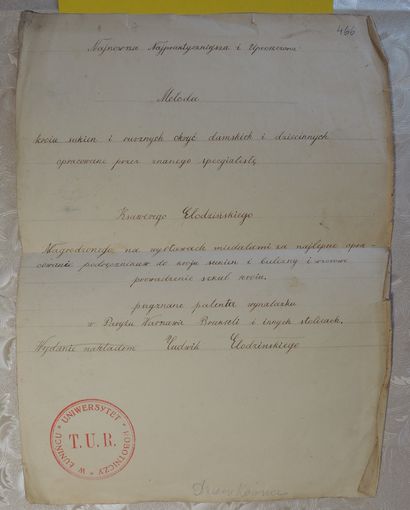 466
Najnowsza Najpraktyczniejsza i Uproszczona
Metoda
kroju sukien i ręcznych okryć damskich i dziecinnych
opracowane przez znanego specjalistę
Ksawerego Głodzińskiego
Nagrodzonego na wystawach medalami za najlepsze opra-
cowanie podręczników do kroju sukien i bielizny i wzorowe
prowadzenie szkół kroju.
przyznane patenta wynalazku
w Paryżu Warszawie Brukseli i innych stolicach.
Wydanie nakładem Ludwik Głodzińskiego
UNIWERSYTET ROBOTNICZY W ŁUNIŃCU
T.U.R.